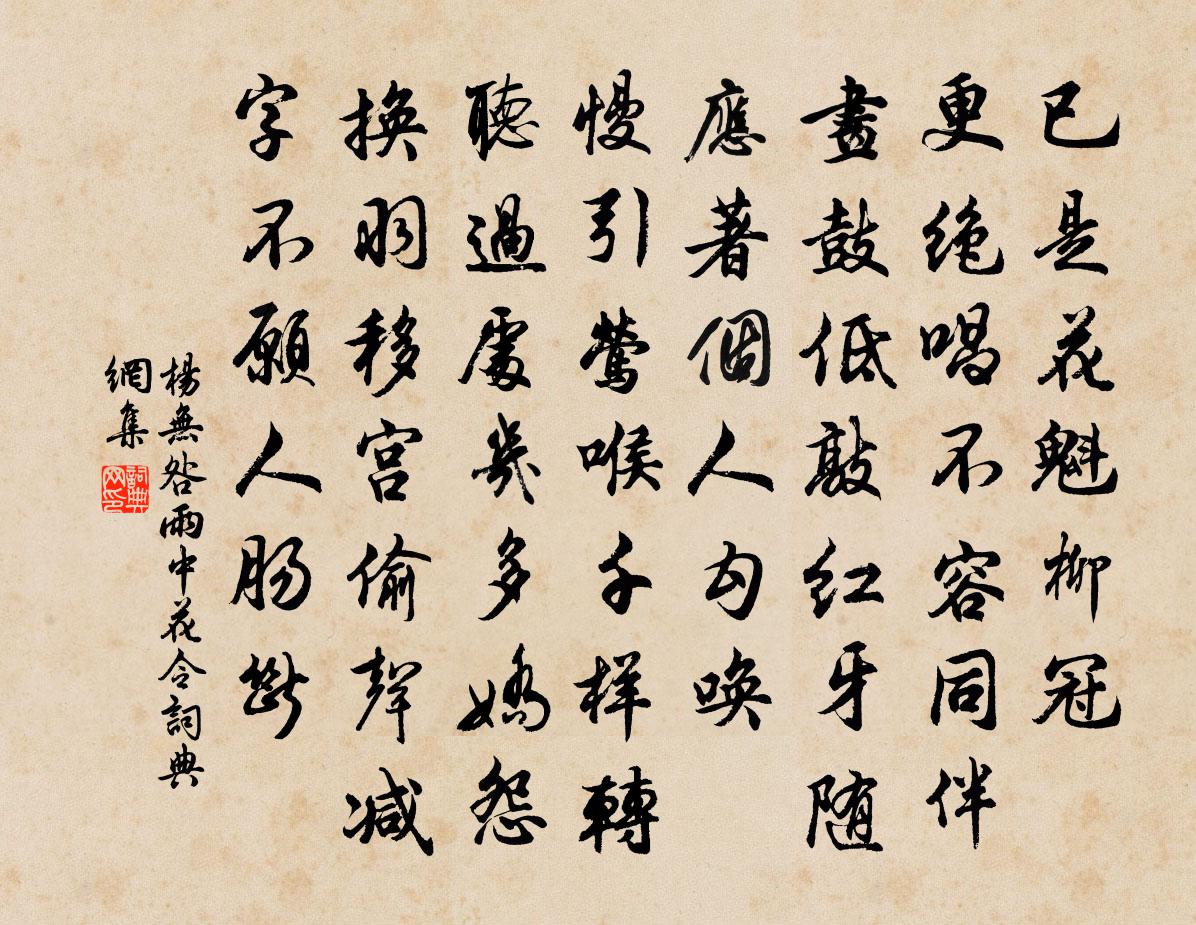 已是花魁柳冠
更绝唱不容同伴
畫鼓低敲红牙随
應著個人勾唤
慢引鶯喉千样轉
聽過處幾多嬌怨
換羽移宫偷聲减
字不願人肠斷
楊無咎雨中花令詞典
網集
詞典
网印